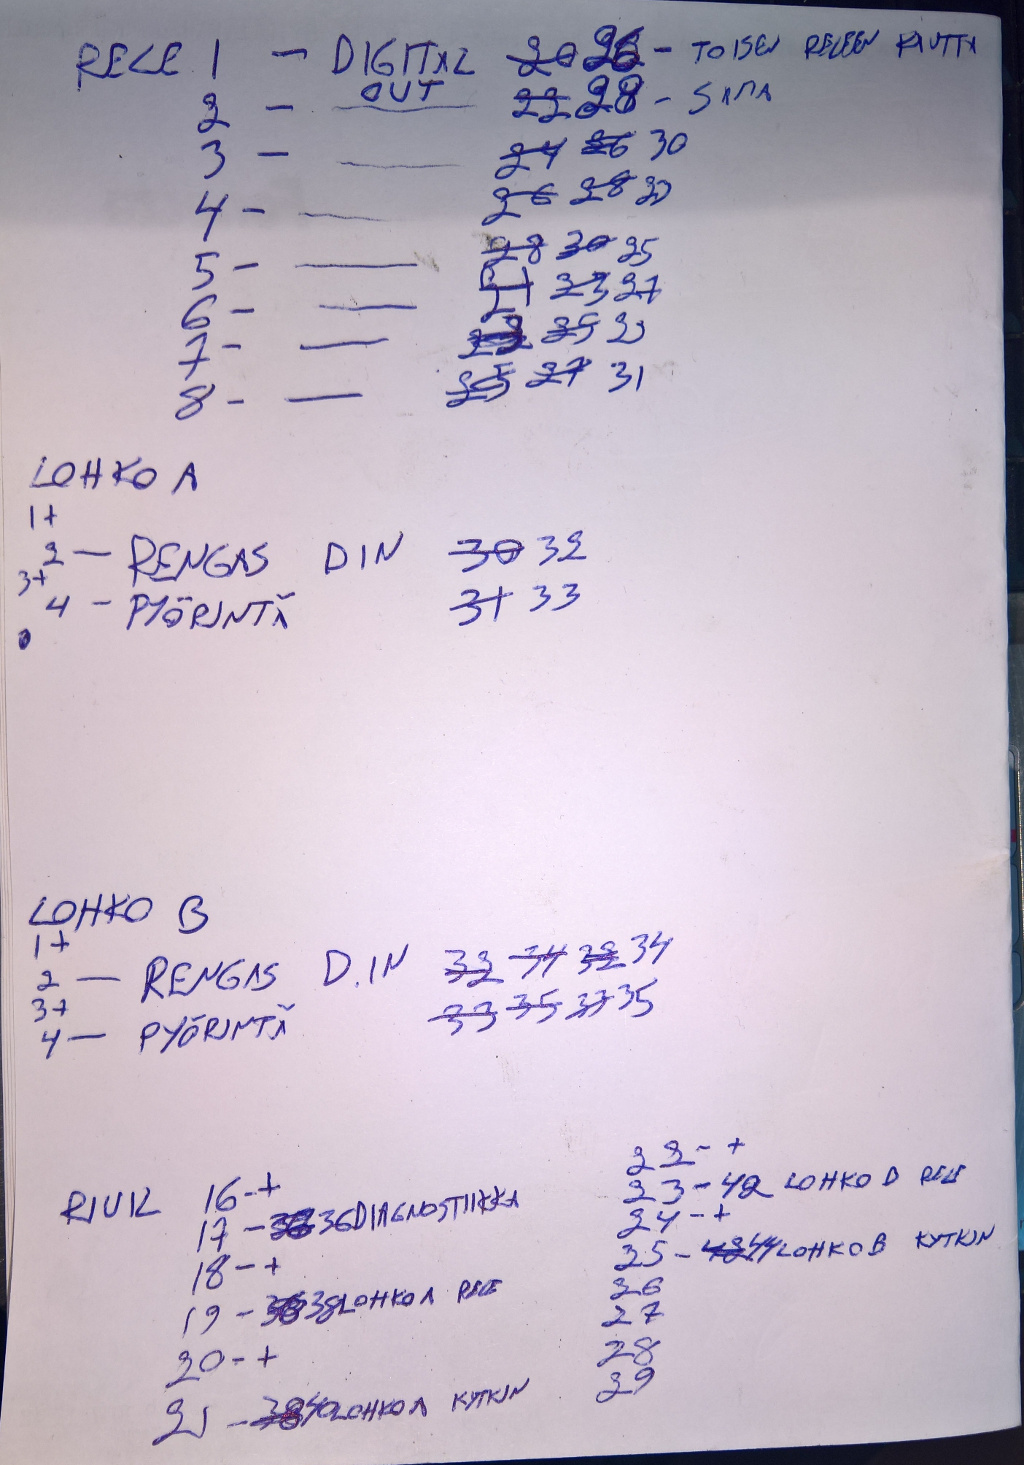 RELE 1 - DIGITAL OUT 20 26 - TOISEN RELEEN KAUTTA
2 - 22 28 - SAMA
3 - 24 26 30
4 - 26 28
5 - 28 30 25
6 - 21 23 27
7 - 25
8 - 25 27 31
LOHKO A
1+
2 - RENGAS DIN 30 32
3+
4 - PYÖRINTÄ 31 33
LOHKO B
1+
2 - RENGAS D.IN 32 34 32 34
3+
4 - PYÖRINTÄ 33 35 33 35
RIVIL 16 - +
17 - 36 DIAGNOSTIIKKA
18 - +
19 - 38 LOHKO A RELE
20 - +
21 - 40 LOHKO A KYTKIN
22 - +
23 - 42 LOHKO B RELE
24 - +
25 - 44 LOHKO B KYTKIN
26
27
28
29